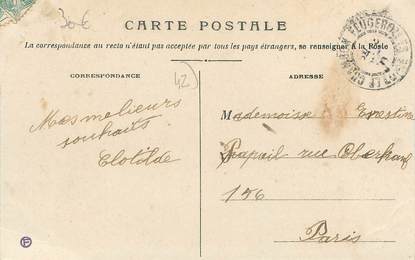 30€
CARTE POSTALE
La correspondance au recto n'étant pas acceptée par tous les pays étrangers, se renseigner à la Poste
CORRESPONDANCE
42
ADRESSE
Mes meilleurs
souhaits
Clotilde
Mademoiselle Ernestine
rue Oberkampf
156
Paris